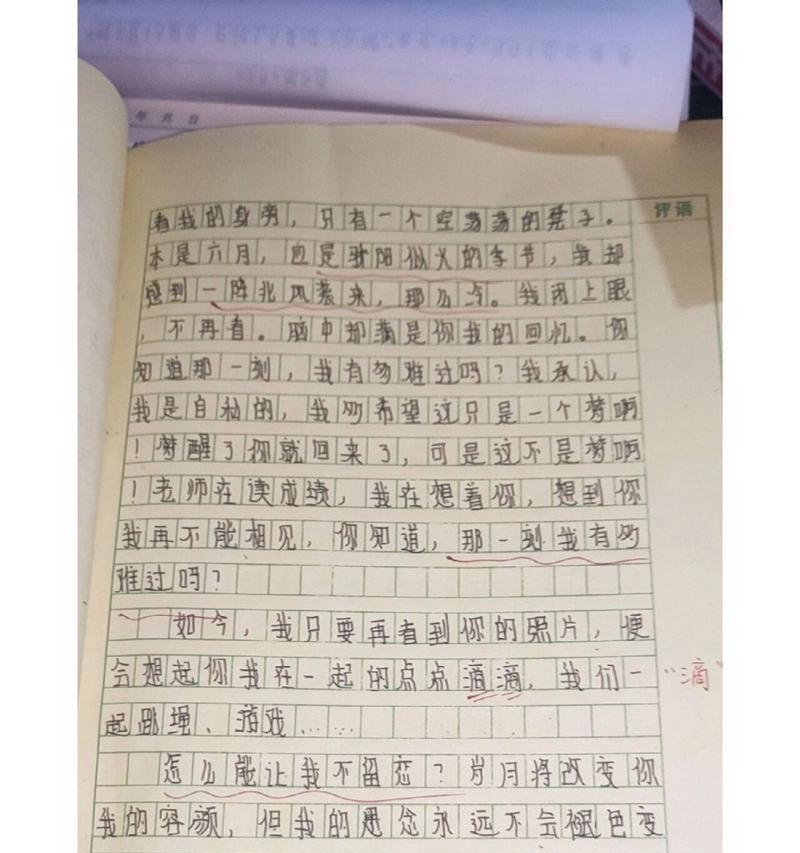 年 月 日
评语
看我的身旁，只有一个空荡荡的凳子。
本是六月，应是骄阳似火的季节，我却
感到一阵北风袭来，那么冷。我闭上眼
，不再看。脑中却满是你我的回忆。你
知道那一刻，我有多难过吗？我承认，
我是自私的，我多希望这只是一个梦啊
！梦醒了你就回来了，可是这不是梦啊
！老师在读成绩，我在想着你，想到你
我再不能相见，你知道，那一刻我有多
难过吗？
如今，我只要再看到你的照片，便
会想起你我在一起的点点滴滴，我们一
"滴"
起跳绳、游戏……
怎么能让我不留恋？岁月将改变你
我的容颜，但我的思念永远不会褪色变